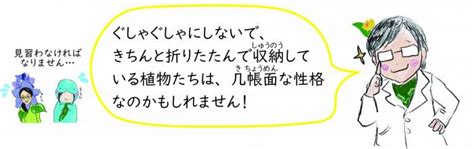 見習わなければ
なりません…
ぐしゃぐしゃにしないで、
きちんと折りたたんで収納して
しゅうのう
いる植物たちは、几帳面な性格
きちょうめん
なのかもしれません！